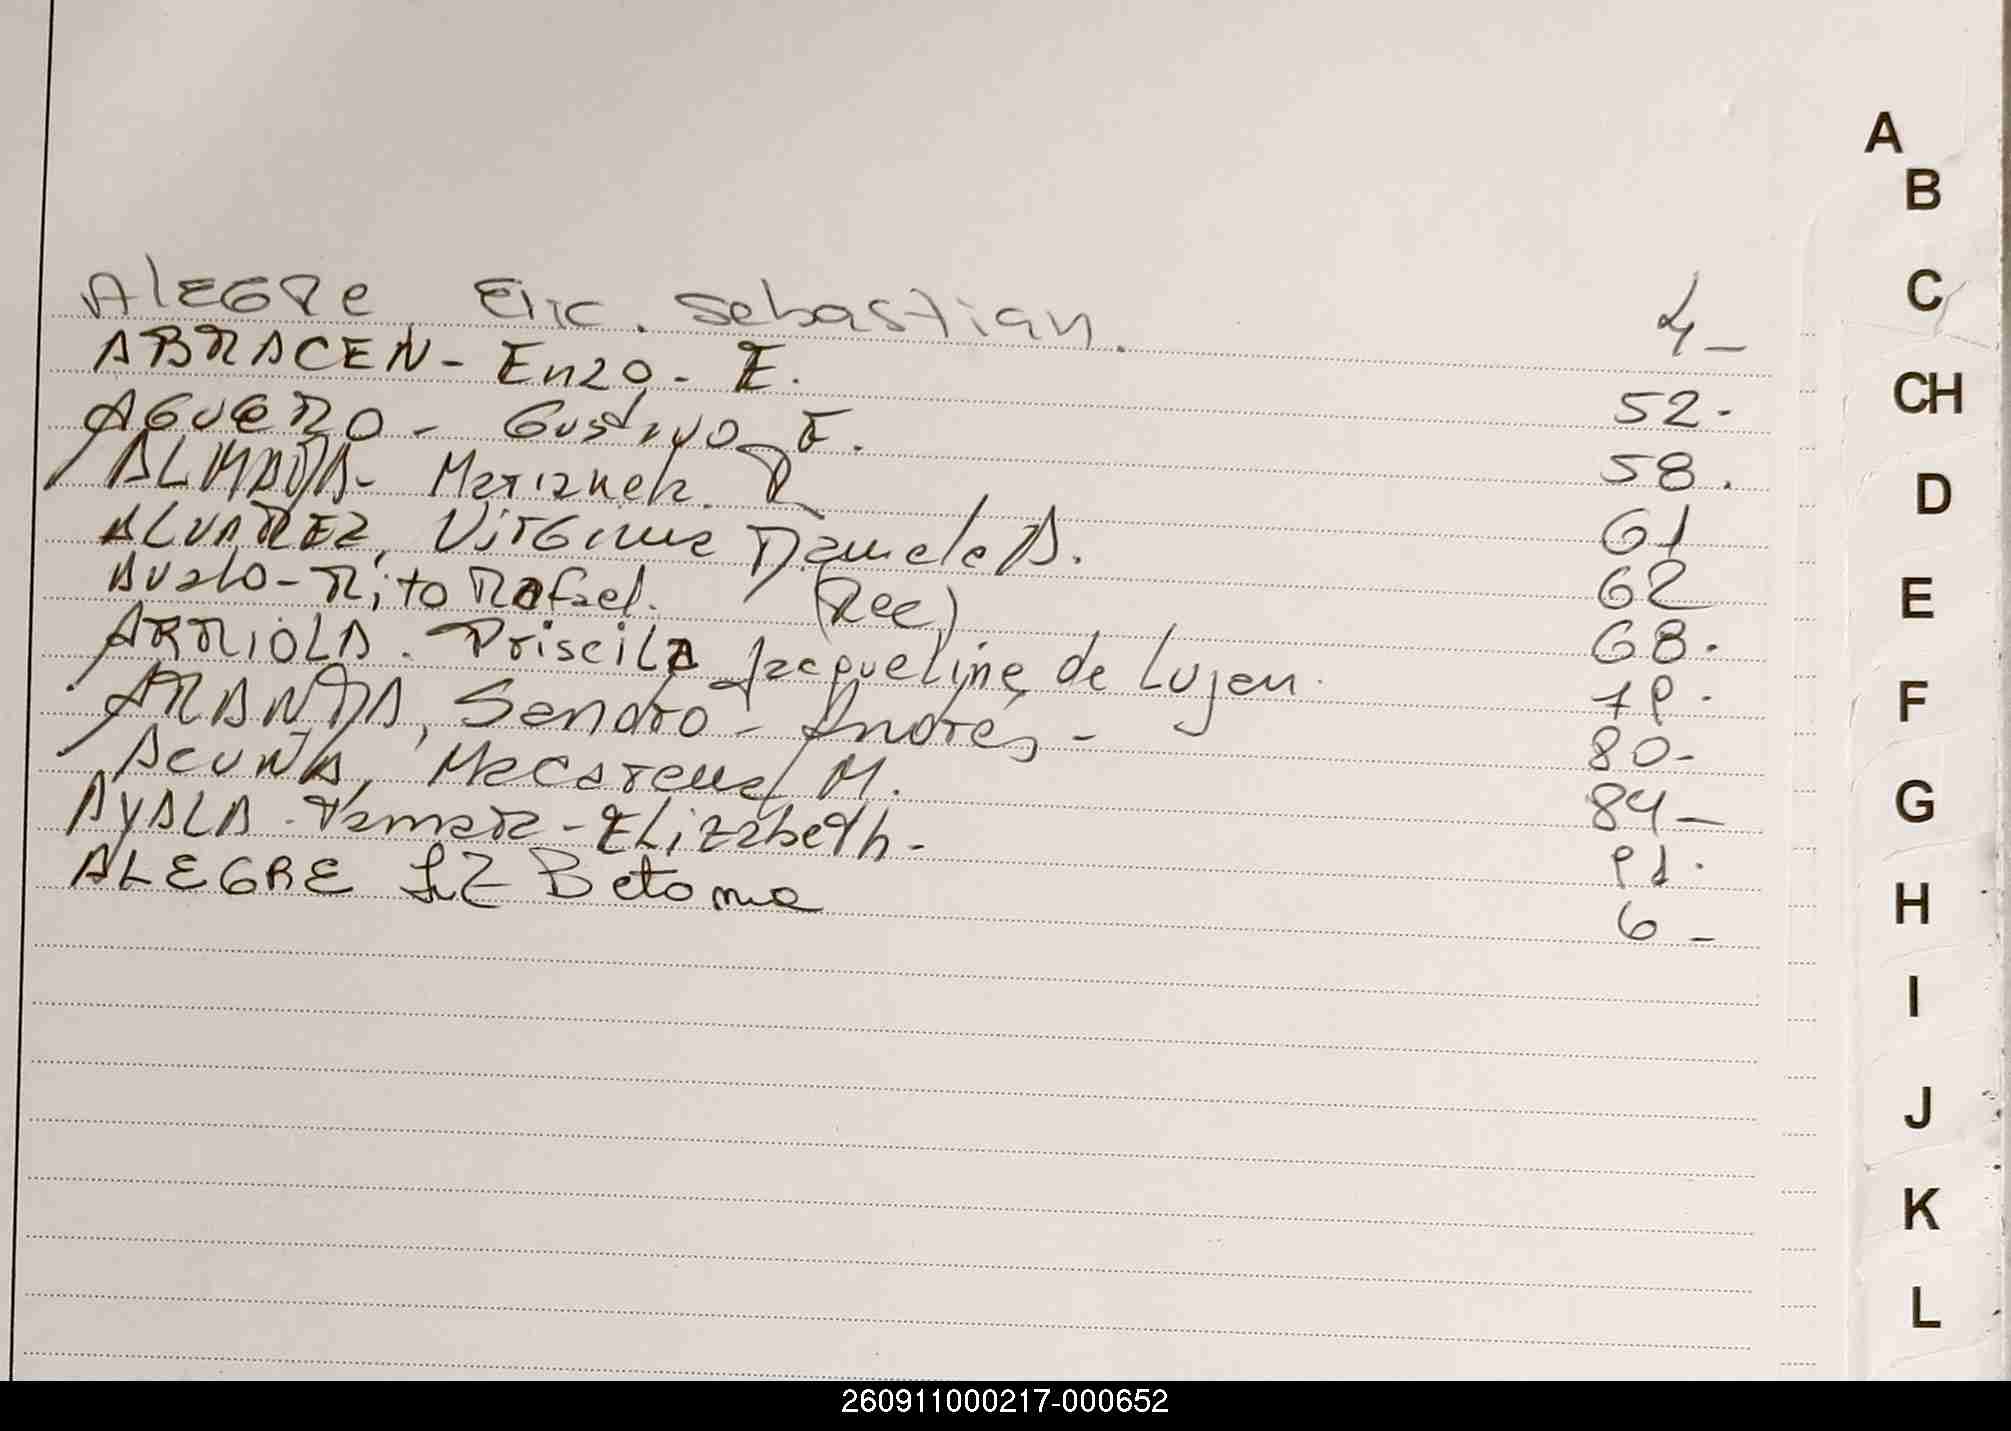 Alegre Eric. Sebastian. 4-
ABRACEN - Enzo - E. 52-
AGUERO - Gustavo E. 58.
ALMADA - Marianela R 61
ALVAREZ, Virginia Daniela A. 62
Avalo - Rito Rafael. (Rec) 68.
ARRIOLA. Priscila Jacqueline de Lujan. 79.
ARANDA, Sandro - Andres - 80-
ACUÑA, Macarena M. 84-
AYALA. Tamara - Elizabeth - 91.
ALEGRE LZ Betania 6-
A
B
C
CH
D
E
F
G
H
I
J
K
L
260911000217-000652